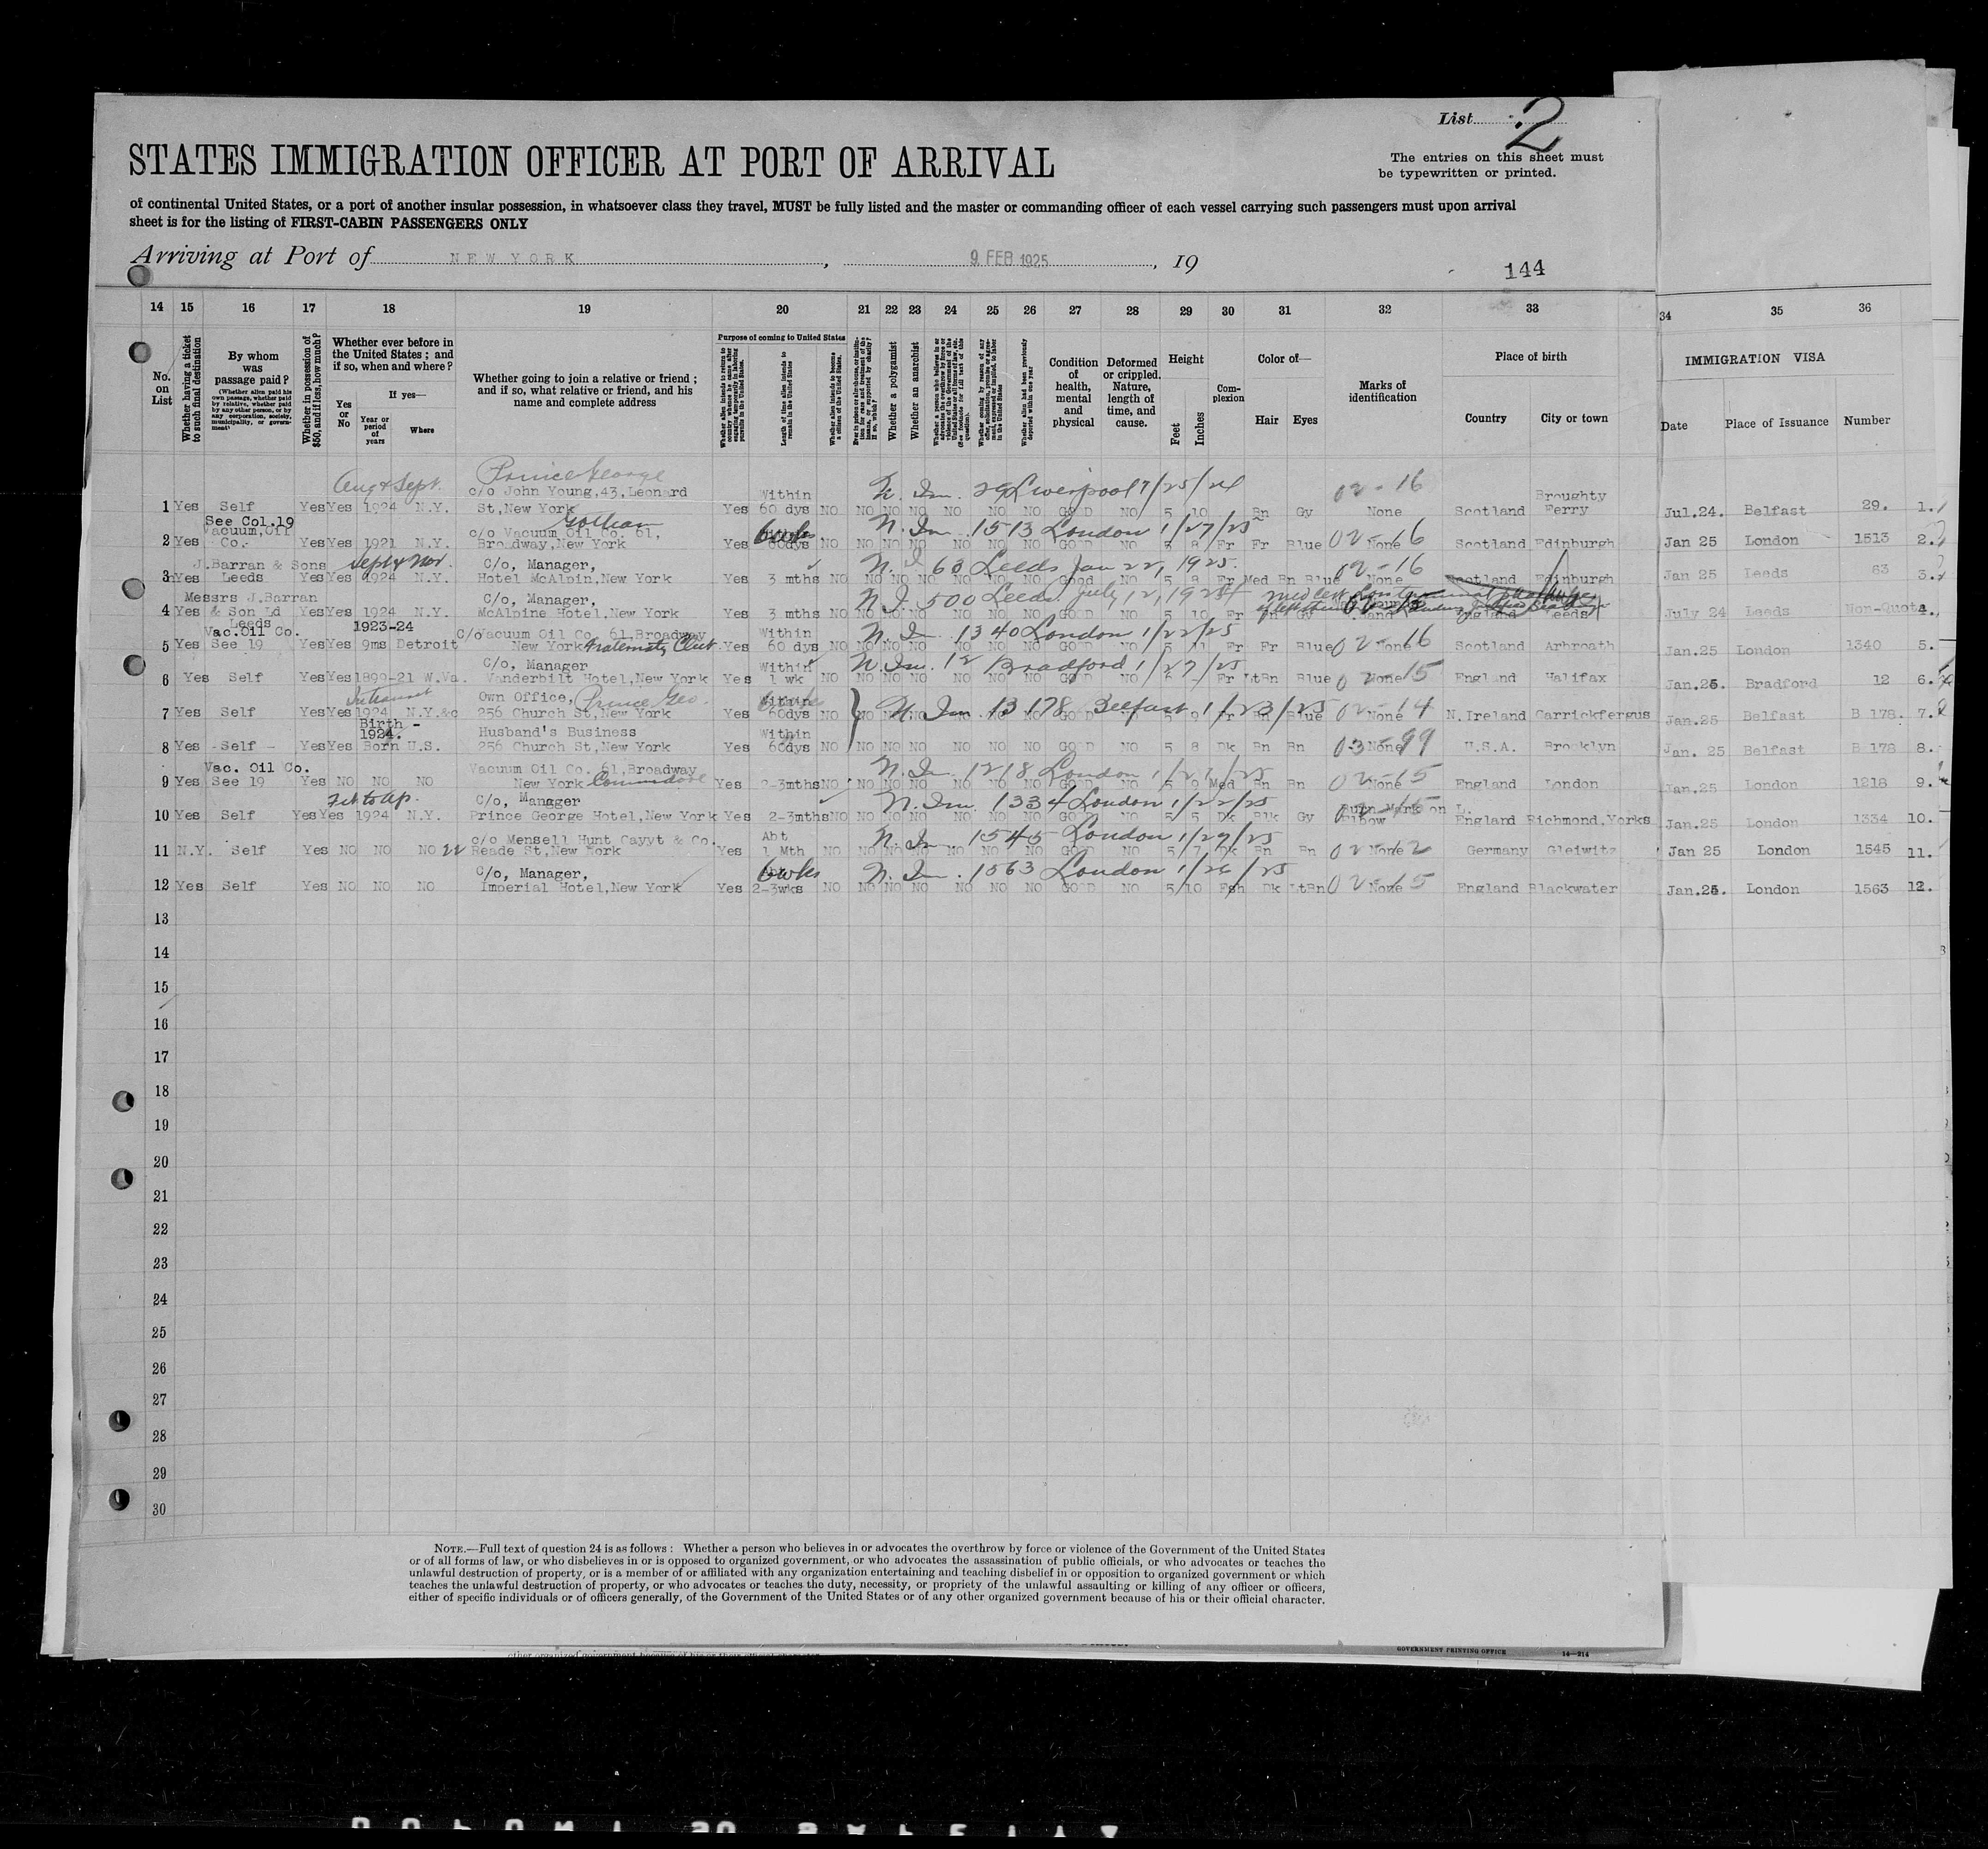 List 2
STATES IMMIGRATION OFFICER AT PORT OF ARRIVAL
The entries on this sheet must
be typewritten or printed.
of continental United States, or a port of another insular possession, in whatsoever class they travel, MUST be fully listed and the master or commanding officer of each vessel carrying such passengers must upon arrival
sheet is for the listing of FIRST-CABIN PASSENGERS ONLY
Arriving at Port of NEW YORK, 9 FEB 1925, 19
144
14 15 16 17 18 19 20 21 22 23 24 25 26 27 28 29 30 31 32 33 34 35 36
No. on List
Whether having a ticket to such final destination
By whom was passage paid?
(Whether alien paid his own passage, whether paid by relative, whether paid by any other person, or by any corporation, society, municipality, or government)
Whether in possession of $50, and if less, how much?
Whether ever before in the United States; and if so, when and where?
Yes or No
If yes—
Year or period of years
Where
Whether going to join a relative or friend; and if so, what relative or friend, and his name and complete address
Purpose of coming to United States
Length of time alien intends to remain in the United States
Whether alien intends to become a citizen of the United States.
Whether a polygamist
Whether an anarchist
Condition of health, mental and physical
Deformed or crippled. Nature, length of time, and cause.
Height
Feet
Inches
Complexion
Color of—
Hair
Eyes
Marks of identification
Place of birth
Country
City or town
IMMIGRATION VISA
Date
Place of Issuance
Number
Aug & Sept. Prince George
c/o John Young,43,Leonard Within 29 Liverpool 7/25/24 02-16 Broughty
1 Yes Self Yes Yes 1924 N.Y. St,New York Yes 60 dys NO NO NO NO NO NO NO GOOD NO 5 10 Bn Gy None Scotland Ferry Jul.24. Belfast 29. 1.
See Col.19 Gotham
Vacuum,Oil c/o Vacuum Oil Co. 61, 6 wks N. Im 1513 London 1/27/25 02-16
2 Yes Co. Yes Yes 1921 N.Y. Broadway,New York Yes 60dys NO NO NO NO NO NO NO GOOD NO 5 8 Fr Fr Blue None Scotland Edinburgh Jan 25 London 1513 2.
J.Barran & Sons Sept & Nov. C/o, Manager, N. I 63 Leeds Jan 22, 1925. 02-16
3 Yes Leeds Yes Yes 1924 N.Y. Hotel McAlpin,New York Yes 3 mths NO NO NO NO NO NO NO Good NO 5 8 Fr Med Bn Blue None Scotland Edinburgh Jan 25 Leeds 63 3.
Messrs J.Barran C/o, Manager, N I 500 Leeds. July 12, 1924
4 Yes & Son Ld Yes Yes 1924 N.Y. McAlpine Hotel,New York Yes 3 mths NO NO NO NO NO NO NO GOOD NO 5 10 Fr Bn Gy England Leeds July 24 Leeds Non-Quota 4.
Leeds
Vac.Oil Co. 1923-24 C/o Vacuum Oil Co. 61,Broadway Within N. Im 1340 London 1/22/25 02-16
5 Yes See 19 Yes Yes 9ms Detroit New York Fraternity Club Yes 60 dys NO NO NO NO NO NO NO GOOD NO 5 11 Fr Fr Blue None Scotland Arbroath Jan.25 London 1340 5.
C/o, Manager Within N. Im. 12 Bradford 1/27/25 02-15
6 Yes Self Yes Yes 1899-21 W.Va. Vanderbilt Hotel,New York Yes 1 wk NO NO NO NO NO NO NO GOOD NO 5 - Fr LtBn Blue None England Halifax Jan.25. Bradford 12 6.
Own Office, Prince Geo. Within N Im 13178 Belfast 1/23/25 02-14
7 Yes Self Yes Yes 1924 N.Y.&c 256 Church St,New York Yes 60dys NO NO NO NO NO NO NO GOOD NO 5 9 Fr Bn Blue None N.Ireland Carrickfergus Jan.25 Belfast B 178. 7.
Birth -
1924. Husband's Business Within 03-99
8 Yes -Self- Yes Yes Born U.S. 256 Church St,New York Yes 60dys NO NO NO NO NO NO NO GOOD NO 5 8 Dk Bn Bn None U.S.A. Brooklyn Jan. 25 Belfast B 178 8.
Vac. Oil Co. Vacuum Oil Co. 61,Broadway N. Im 1218 London 1/27/25 02-15
9 Yes See 19 Yes NO NO NO New York Commodore Yes 2-3mths NO NO NO NO NO NO NO GOOD NO 5 9 Med Bn Bn None England London Jan.25 London 1218 9.
Feb to Ap. C/o, Manager N. Im. 1334 London 1/22/25 02-15 Burn Mark on L.
10 Yes Self Yes Yes 1924 N.Y. Prince George Hotel,New York Yes 2-3mths NO NO NO NO NO NO NO GOOD NO 5 5 Dk Blk Gy Elbow England Richmond,Yorks Jan.25 London 1334 10.
c/o Mensell Hunt Cayyt & Co. Abt N Im 1545 London 1/27/25 02-12
11 N.Y. Self Yes NO NO NO 22 Reade St,New York Yes 1 Mth NO NO NO NO NO NO NO GOOD NO 5 7 Dk Bn Bn None Germany Gleiwitz Jan 25 London 1545 11.
C/o, Manager, 6 wks N. Im. 1563 London 1/26/25 02-15
12 Yes Self Yes NO NO NO Imperial Hotel,New York Yes 2-3wks NO NO NO NO NO NO NO GOOD NO 5 10 Fsh Dk LtBn None England Blackwater Jan.25. London 1563 12.
13
14
15
16
17
18
19
20
21
22
23
24
25
26
27
28
29
30
NOTE.—Full text of question 24 is as follows: Whether a person who believes in or advocates the overthrow by force or violence of the Government of the United States
or of all forms of law, or who disbelieves in or is opposed to organized government, or who advocates the assassination of public officials, or who advocates or teaches the
unlawful destruction of property, or is a member of or affiliated with any organization entertaining and teaching disbelief in or opposition to organized government or which
teaches the unlawful destruction of property, or who advocates or teaches the duty, necessity, or propriety of the unlawful assaulting or killing of any officer or officers,
either of specific individuals or of officers generally, of the Government of the United States or of any other organized government because of his or their official character.
GOVERNMENT PRINTING OFFICE 14—214